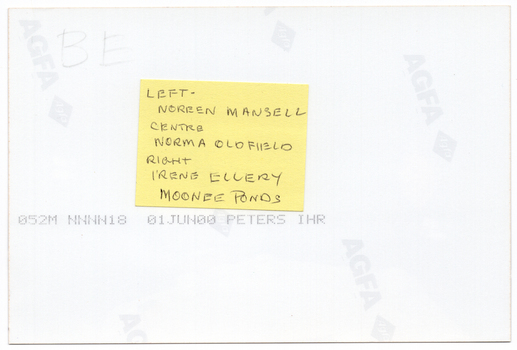 BE
AGFA
AGFA
LEFT-
NOREEN MANSELL
CENTRE
NORMA OLDFIELD
RIGHT
IRENE ELLERY
MOONEE PONDS
052M NNNN18 01JUN00 PETERS IHR
AGFA